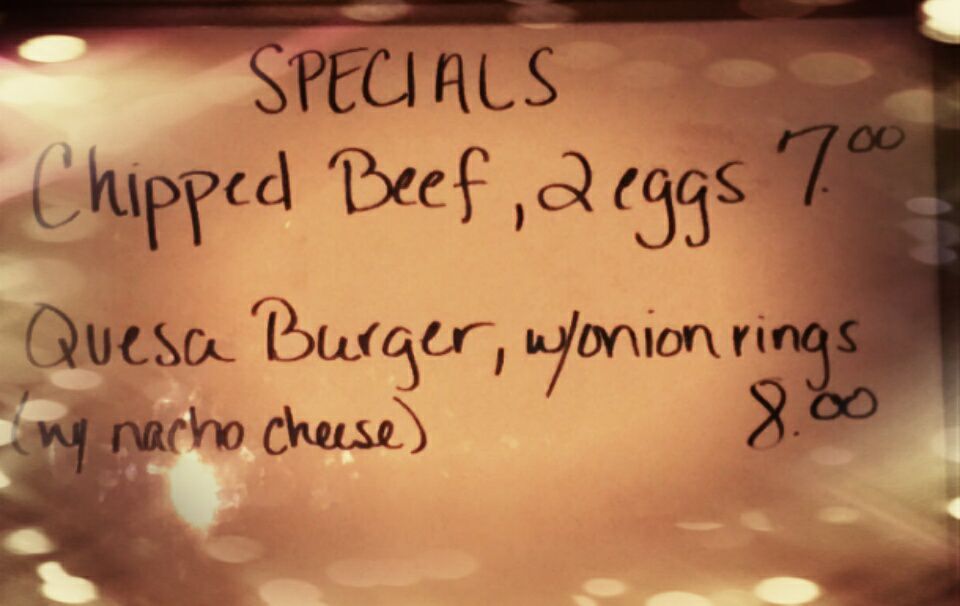 SPECIALS
Chipped Beef, 2 eggs 7.00
Quesa Burger, w/onion rings
(ny nacho cheese) 8.00